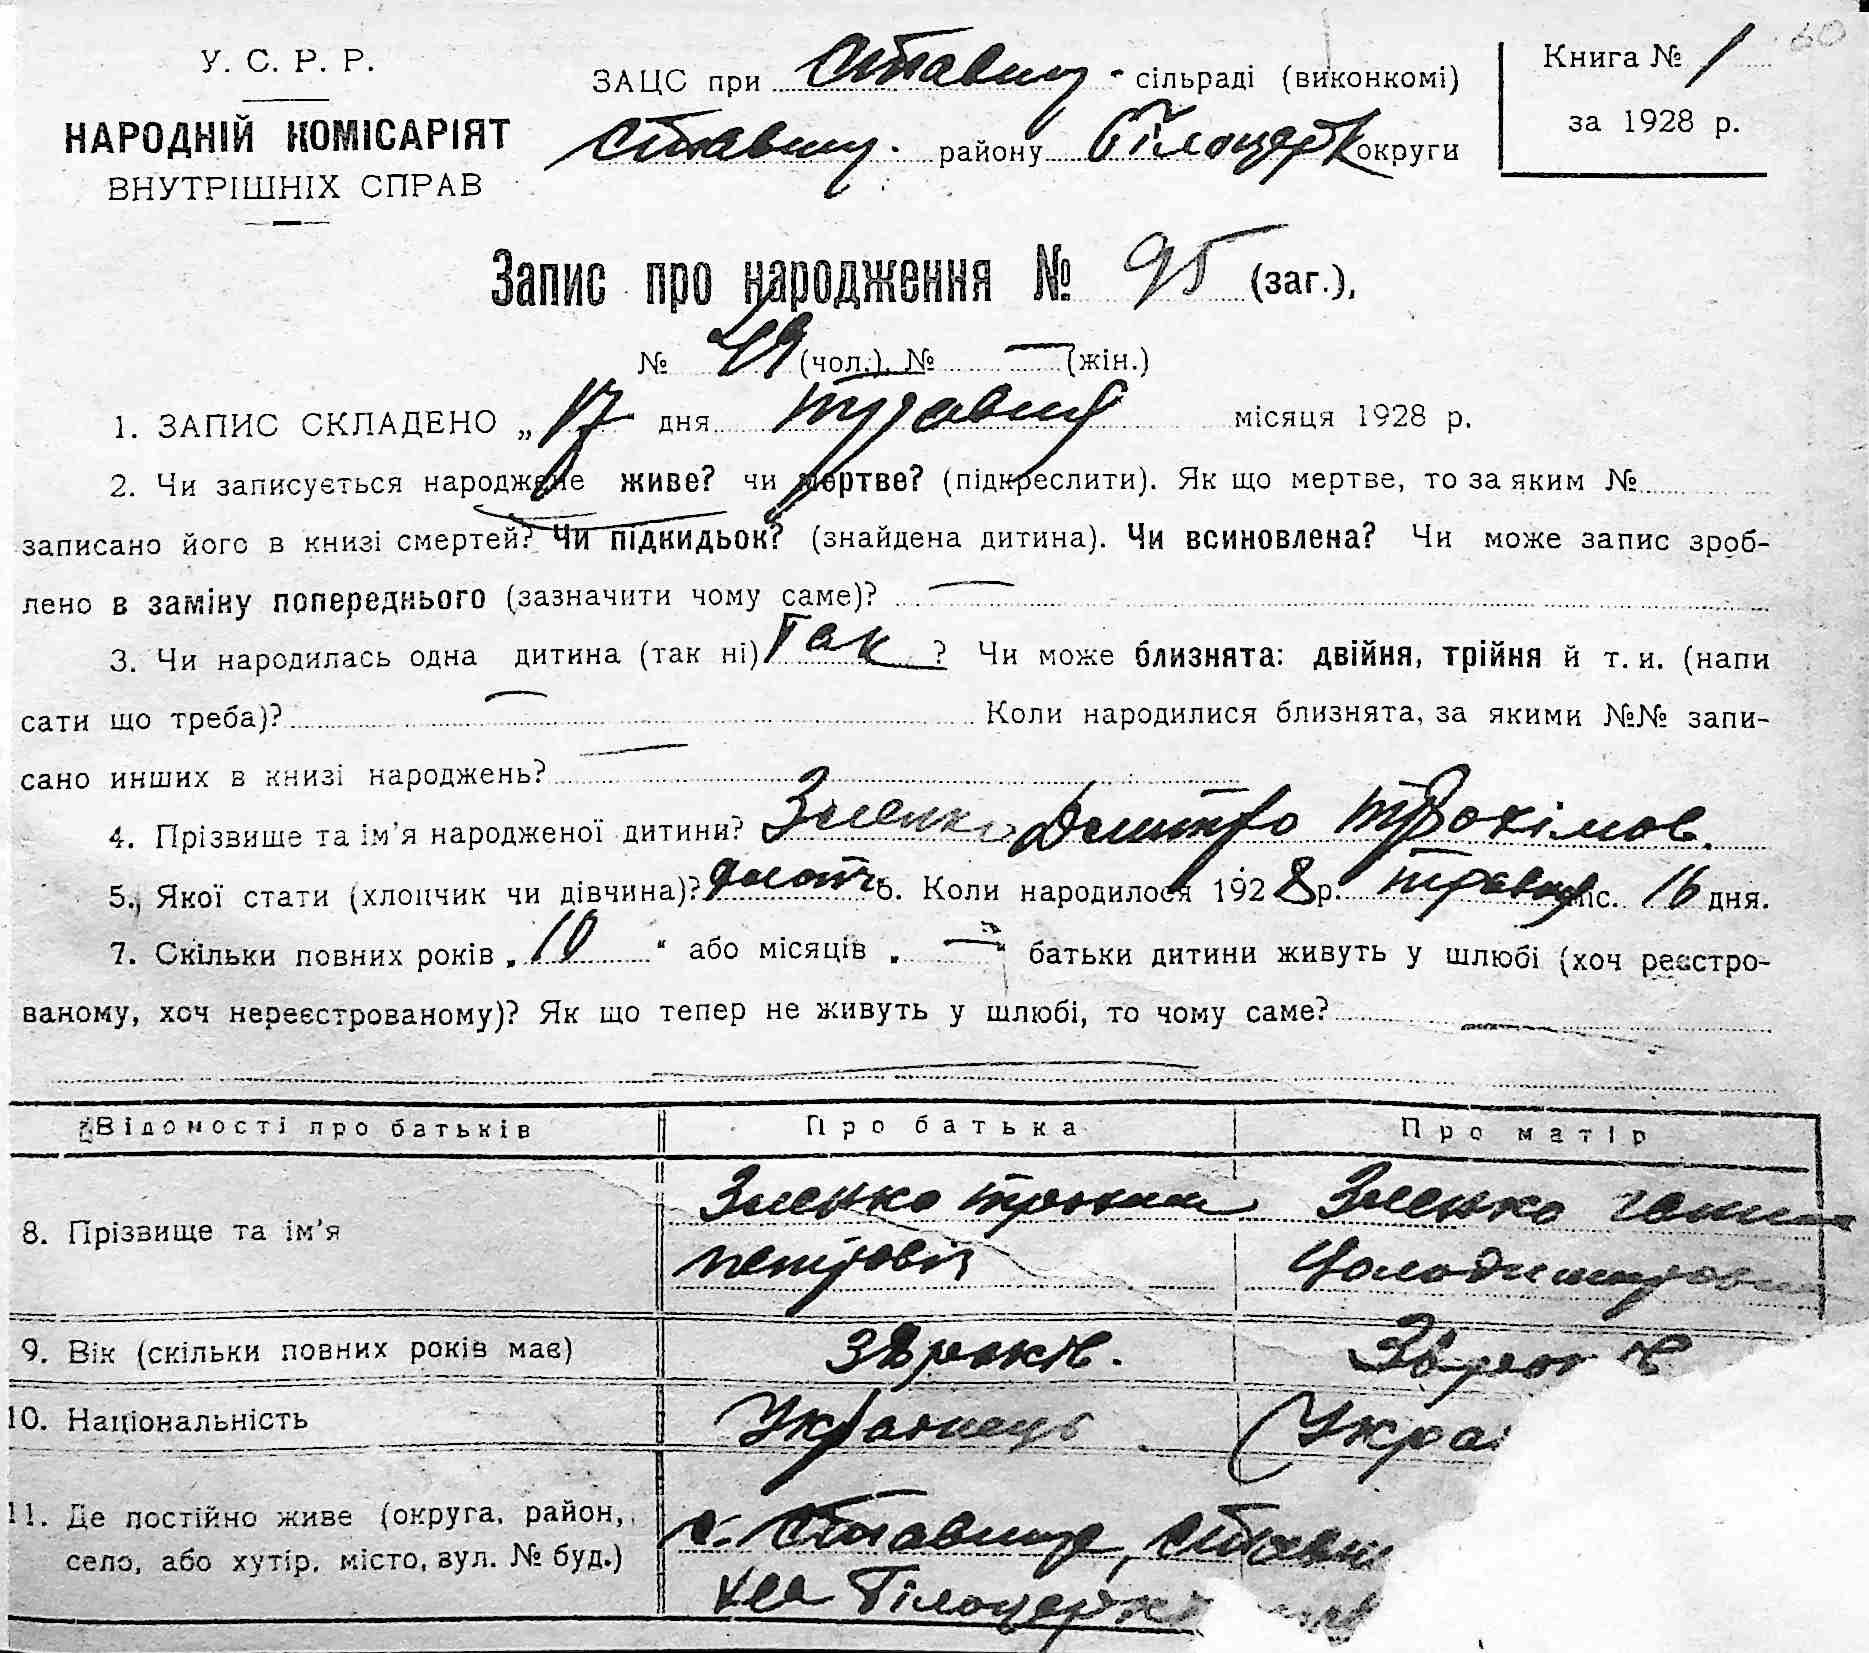 60
У. С. Р. Р.
НАРОДНІЙ КОМІСАРІЯТ
ВНУТРІШНІХ СПРАВ
ЗАЦС при Ставищ. сільраді (виконкомі)
Ставищ. району Білоцерк округи
Книга № 1
за 1928 р.
Запис про народження № 95 (заг.),
№ 49 (чол.), № — (жін.)
1. ЗАПИС СКЛАДЕНО „17 дня травня місяця 1928 р.
2. Чи записується народжене живе? чи мертве? (підкреслити). Як що мертве, то за яким №
записано його в книзі смертей? Чи підкидьок? (знайдена дитина). Чи всиновлена? Чи може запис зроб-
лено в заміну попереднього (зазначити чому саме)? —
3. Чи народилась одна дитина (так ні) Так ? Чи може близнята: двійня, трійня й т. и. (напи
сати що треба)? — Коли народилися близнята, за якими №№ запи-
сано инших в книзі народжень? —
4. Прізвище та ім'я народженої дитини? Зленко Дмитро Трохімов.
5. Якої стати (хлопчик чи дівчина)? 6. Коли народилося 1928 р. травня міс. 16 дня.
7. Скільки повних років „10" або місяців „—" батьки дитини живуть у шлюбі (хоч реєстро-
ваному, хоч нереєстрованому)? Як що тепер не живуть у шлюбі, то чому саме? —
Відомості про батьків Про батька Про матір
8. Прізвище та ім'я Зленко Трохим Зленко
Петрович Володимировн
9. Вік (скільки повних років має) 38 років.
10. Національність Українець Укра
11. Де постійно живе (округа, район, с. Ставище, Стави
село, або хутір, місто, вул. № буд.) Білоцерк